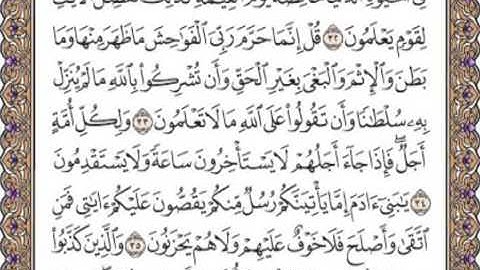 لِقَوْمٍ يَعْلَمُونَ ٣٢ قُلْ إِنَّمَا حَرَّمَ رَبِّيَ ٱلْفَوَٰحِشَ مَا ظَهَرَ مِنْهَا وَمَا
بَطَنَ وَٱلْإِثْمَ وَٱلْبَغْيَ بِغَيْرِ ٱلْحَقِّ وَأَن تُشْرِكُوا۟ بِٱللَّهِ مَا لَمْ يُنَزِّلْ
بِهِۦ سُلْطَٰنًا وَأَن تَقُولُوا۟ عَلَى ٱللَّهِ مَا لَا تَعْلَمُونَ ٣٣ وَلِكُلِّ أُمَّةٍ
أَجَلٌ ۖ فَإِذَا جَآءَ أَجَلُهُمْ لَا يَسْتَأْخِرُونَ سَاعَةً وَلَا يَسْتَقْدِمُونَ
٣٤ يَٰبَنِىٓ ءَادَمَ إِمَّا يَأْتِيَنَّكُمْ رُسُلٌ مِّنكُمْ يَقُصُّونَ عَلَيْكُمْ ءَايَٰتِى فَمَنِ
ٱتَّقَىٰ وَأَصْلَحَ فَلَا خَوْفٌ عَلَيْهِمْ وَلَا هُمْ يَحْزَنُونَ ٣٥ وَٱلَّذِينَ كَذَّبُوا۟